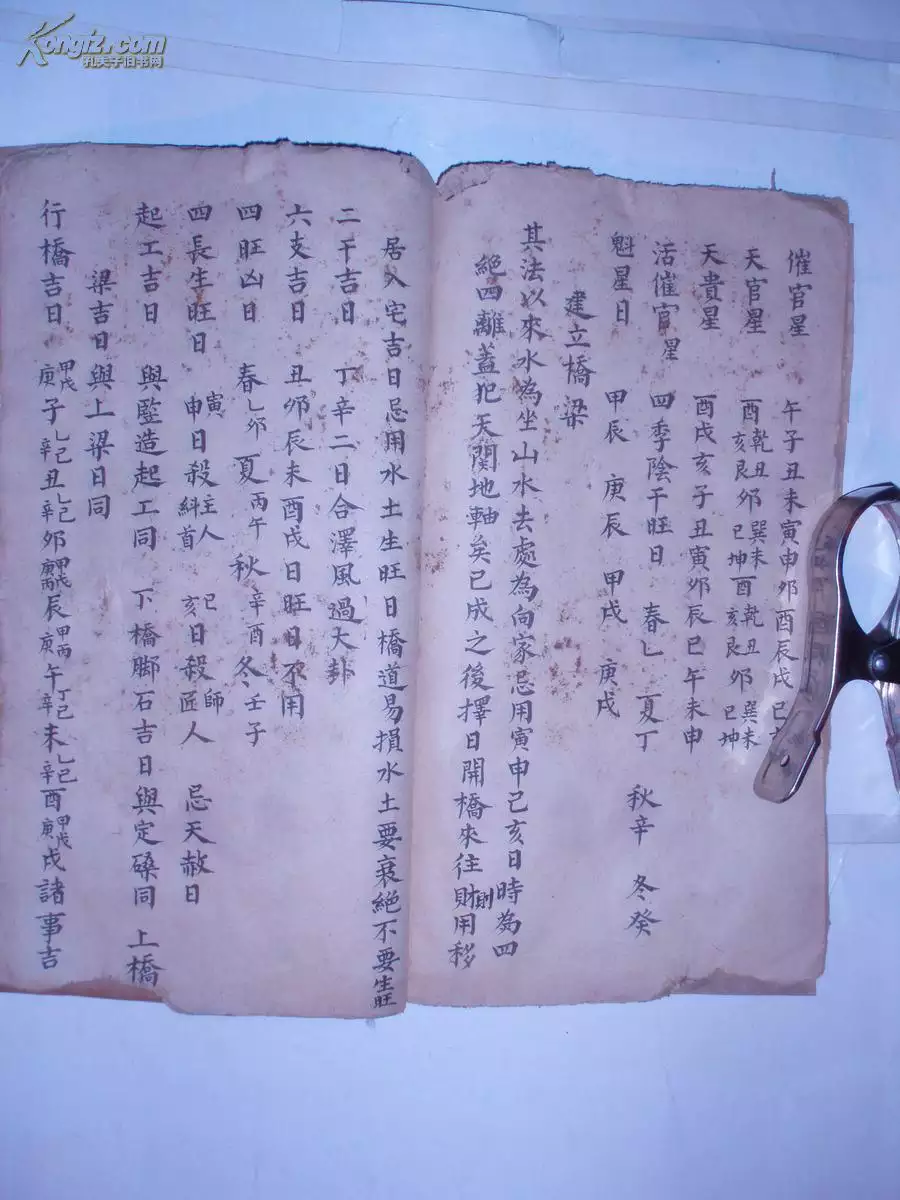 Kongfz.com
孔夫子旧书网
催官星 午子丑未寅申卯酉辰戌巳
天官星 酉乾亥丑艮卯巽巳未坤酉乾亥丑艮卯巽巳未坤
天貴星 酉戌亥子丑寅卯辰巳午未申
活催官星 四季陰干旺日 春乙 夏丁 秋辛 冬癸
魁星日 甲辰 庚辰 甲戌 庚戌
建立橋梁
其法以來水為坐山水去處為向家忌用寅申巳亥日時為四
絕四離蓋犯天関地軸矣已成之後擇日開橋來往則財用移
居入宅吉日忌用水土生旺日橋道易損水土要衰絕不要生旺
二干吉日 丁辛二日合澤風過大卦
六支吉日 丑卯辰未酉戌日旺日不用
四旺凶日 春乙卯 夏丙午 秋辛酉 冬壬子
四長生旺日 寅申日殺主人糾首 巳亥日殺師匠人 忌天赦日
起工吉日 與豎造起工同 下橋腳石吉日與定磉同 上橋
梁吉日與上梁日同
行橋吉日 甲戌庚子乙己辛丑乙己辛卯甲戌庚丙辰甲丙庚午丁己辛未乙己辛酉甲戊庚戌諸事吉